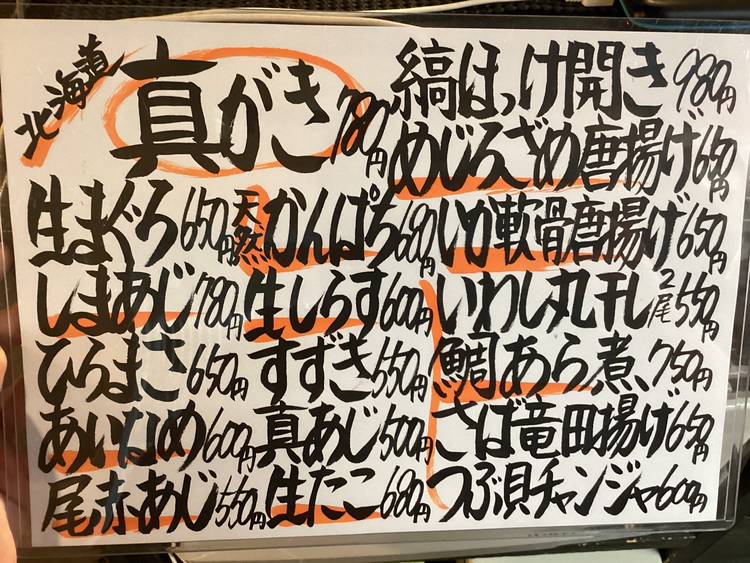 北海道 真がき 780円
生まぐろ 650円
しまあじ 780円
ひらまさ 650円
あいなめ 600円
尾赤あじ 550円
天然かんぱち 680円
生しらす 600円
すずき 550円
真あじ 500円
生たこ 680円
縞ほっけ開き 980円
めじろざめ唐揚げ 650円
いか軟骨唐揚げ 650円
いわし丸干し 2尾 550円
鯛あら煮 750円
さば竜田揚げ 650円
つぶ貝チャンジャ 600円